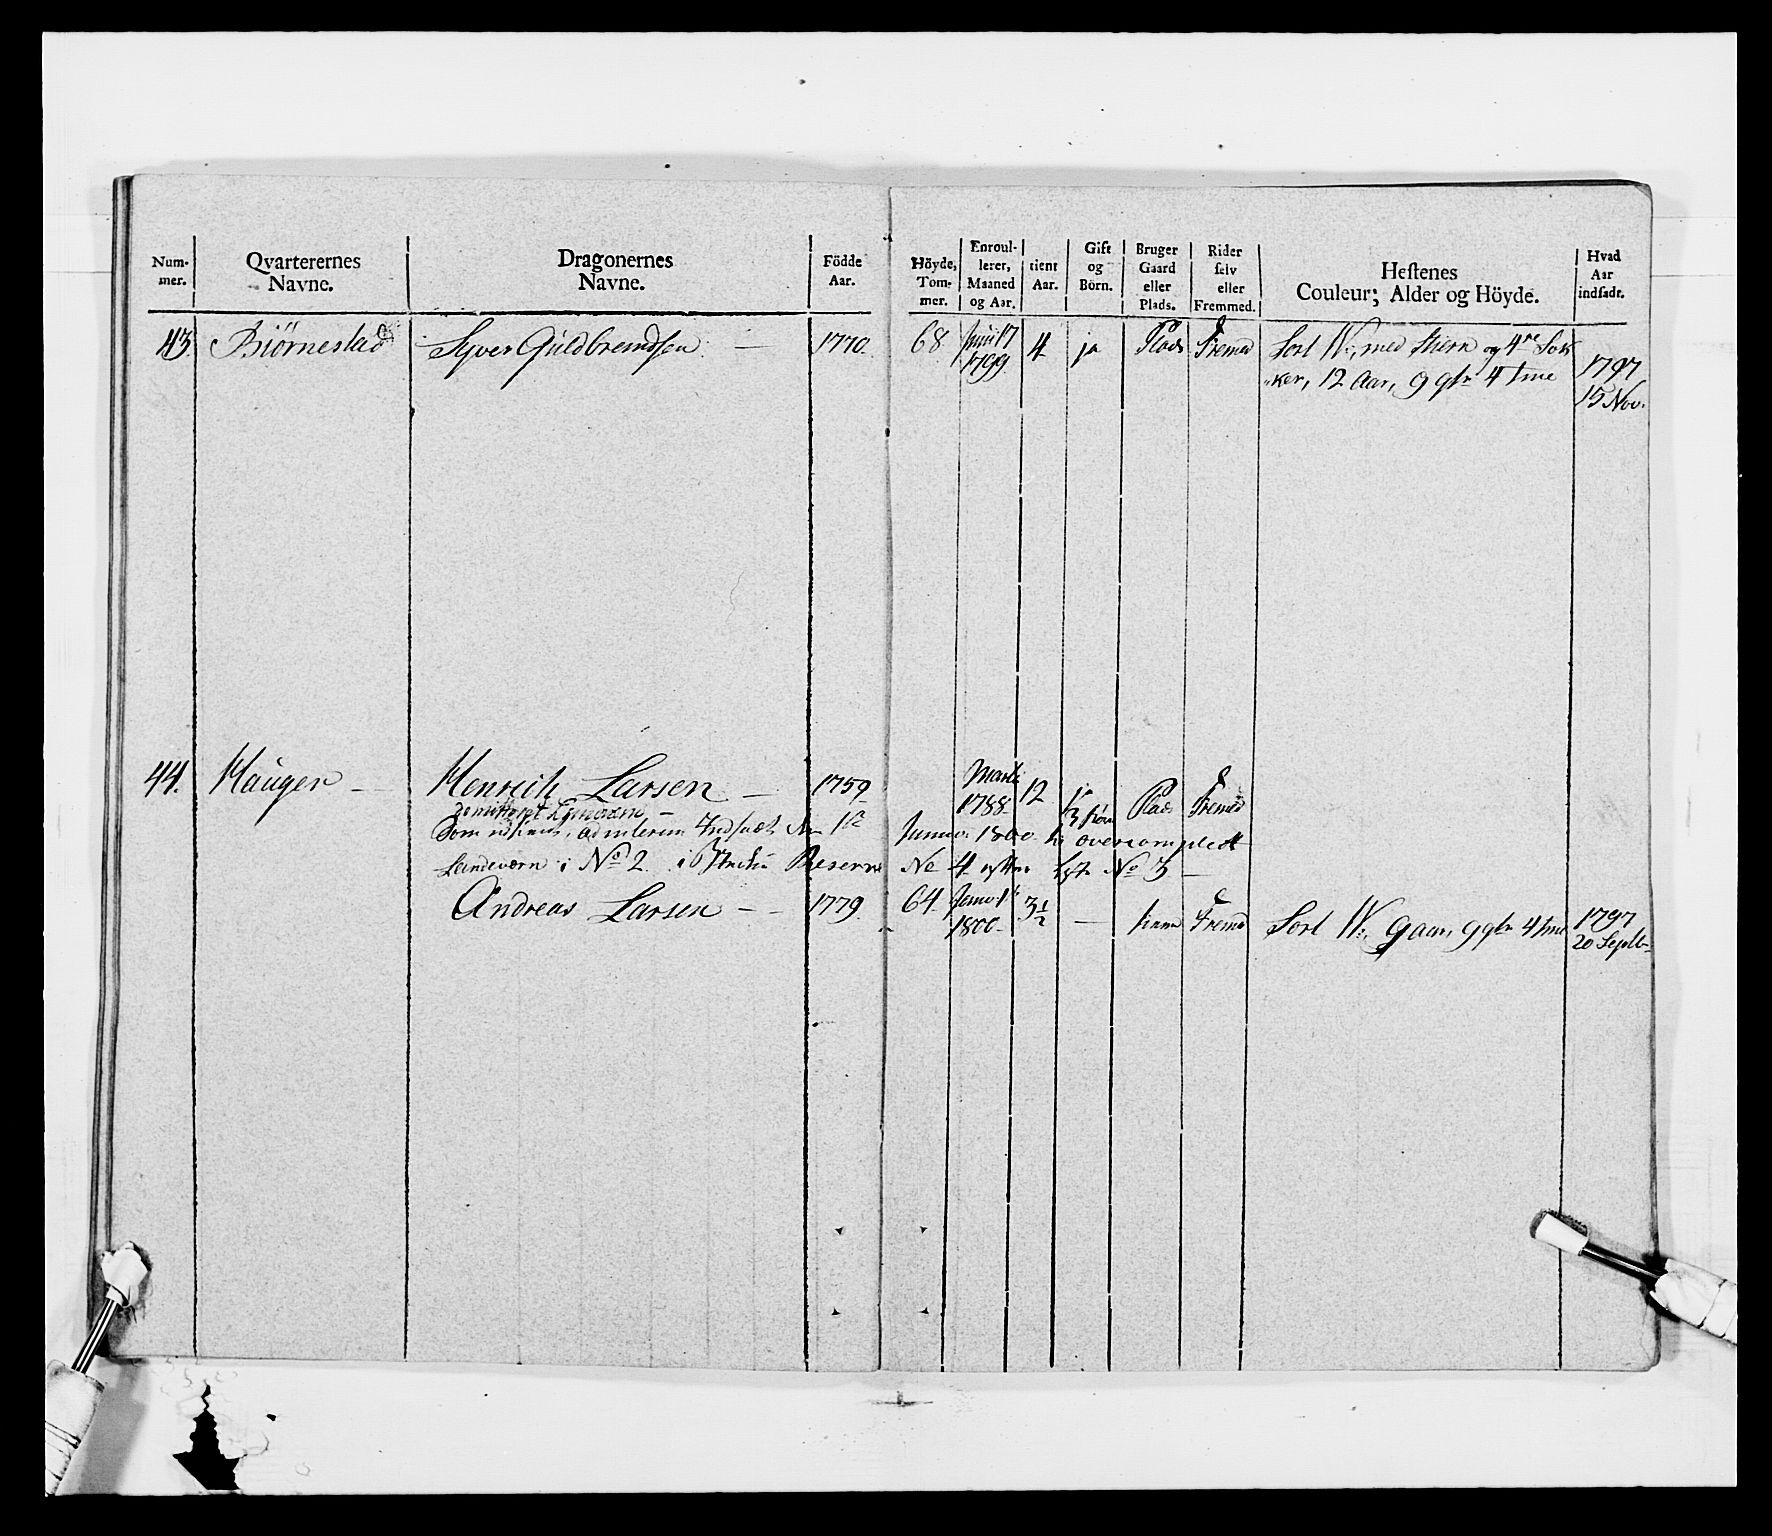 Num-
mer.
Qvarterernes
Navne.
Dragonernes
Navne.
Födde
Aar.
Höyde,
Tom-
mer.
Enroul-
lerer,
Maaned
og Aar.
tient
Aar.
Gift
og
Börn.
Bruger
Gaard
eller
Plads.
Rider
selv
eller
Fremmed.
Hestenes
Couleur; Alder og Höyde.
Hvad
Aar
indsadt.
43 Biörnestad Syver Guldbrendsen 1770 68 Juni 17 4 ja Plads Fremed Sort W: med stiern og 4re Sok
1799 ker, 12 Aar, 9 qtr 4 tme 1797
15 Nov.
44. Hauger Henrich Larsen 1759 Marti 12 Plads Fremed
1788
Som ad interim Indsadt 1800 overcomplect
Landeværn i No 2. i Reserve No 4 No 3
Andreas Larsen 1779 64 3 1/2 Fremd Sort W: 9 aar, 9 qtr 4 tme 1797
1800 20 Septb